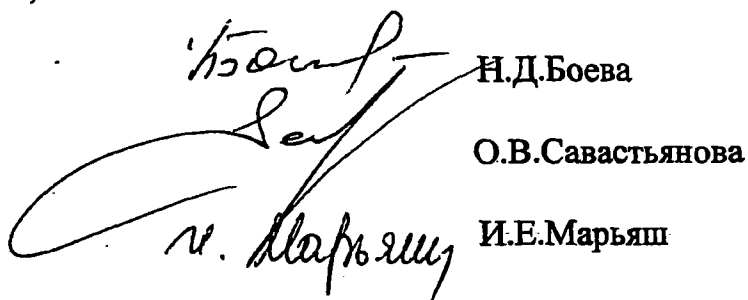 Н.Д.Боева
О.В.Савастьянова
и. Марьяш И.Е.Марьяш